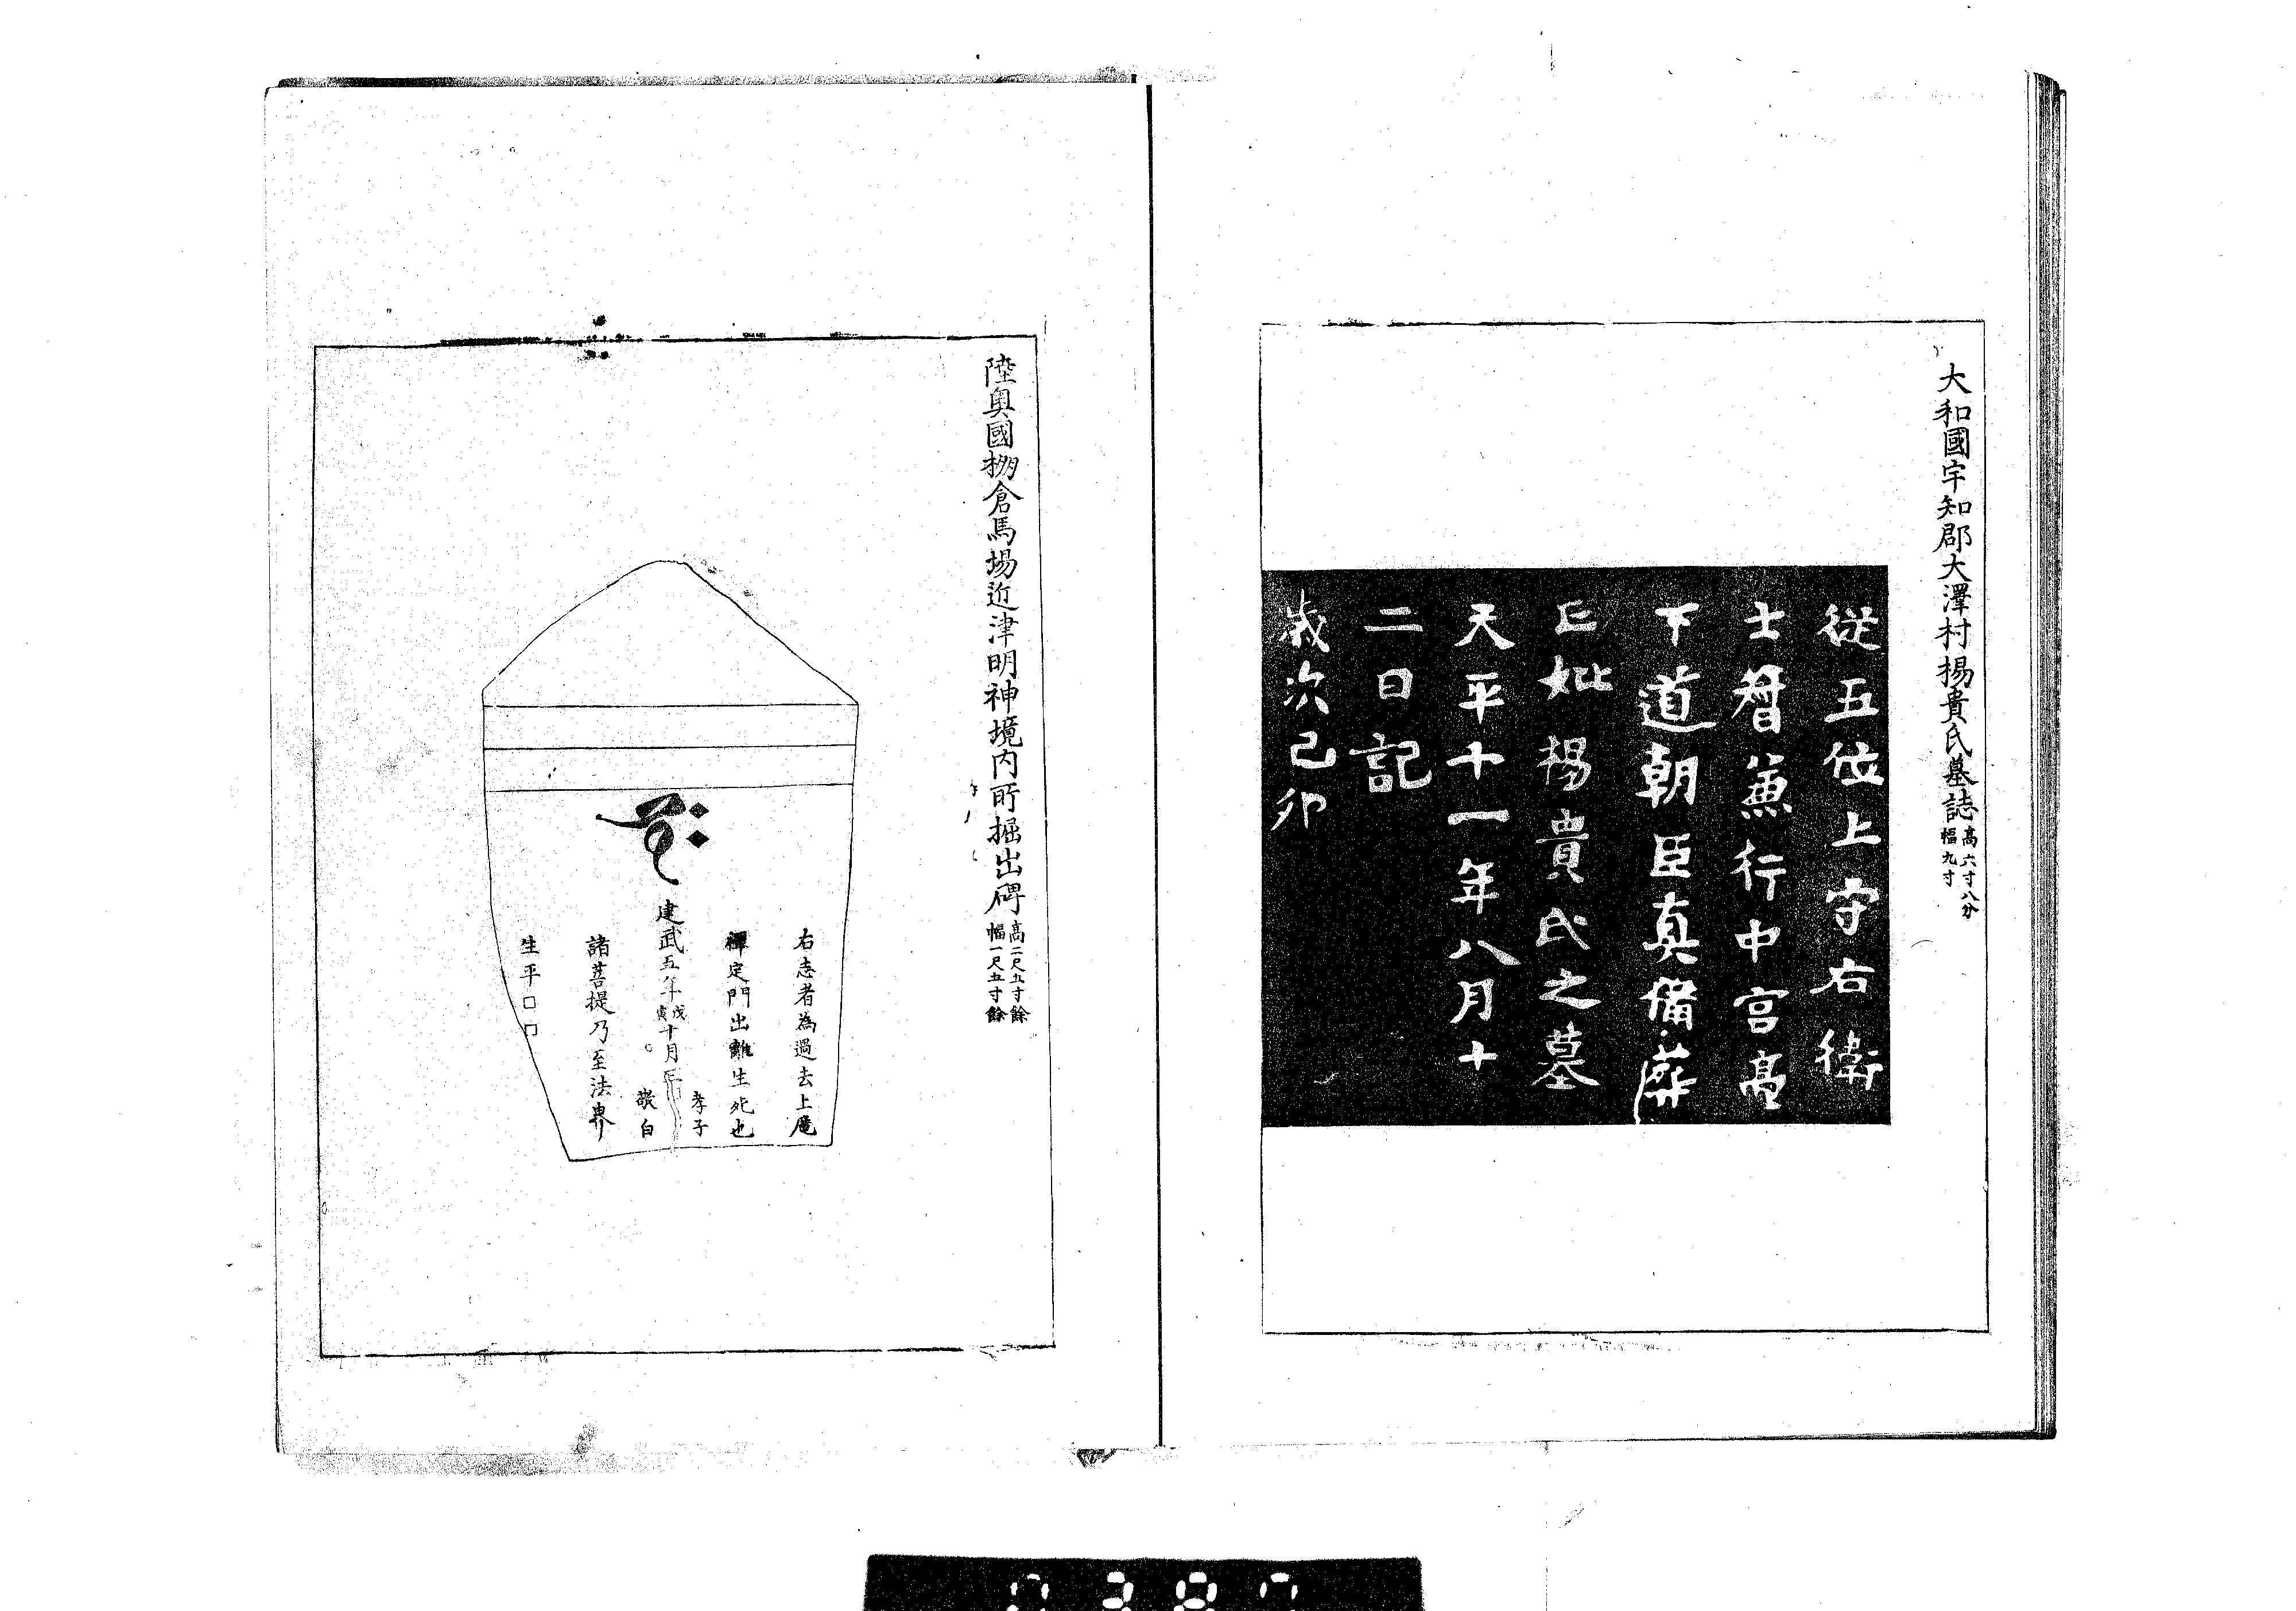 大和國宇知郡大澤村楊貴氏墓誌
高六寸八分
幅九寸
從五位上守右衛
士督兼行中宮亮
下道朝臣真備葬
亡妣楊貴氏之墓
天平十一年八月十
二日記
歳次己卯
陸奥國棚倉馬場近津明神境内所掘出碑
高二尺五寸餘
幅一尺五寸餘
右志者為過去上
禪定門出離生死也
孝子
建武五年戊寅十月
敬白
諸菩提乃至法界
生平□□